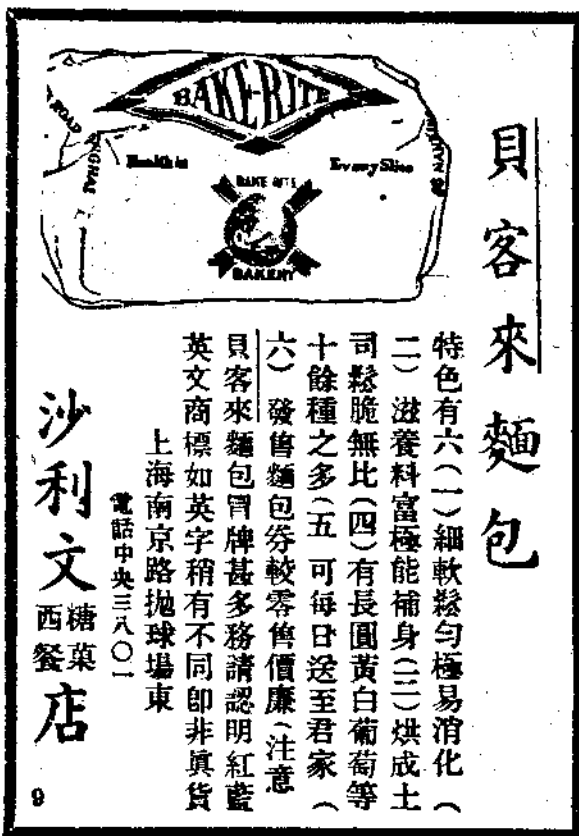 BAKE-RITE
ROAD
NGHAI
Health in
Every Slice
BAKE RITE
BAKERY
貝客來麵包
特色有六(一)細軟鬆勻極易消化(
二)滋養料富極能補身(三)烘成土
司鬆脆無比(四)有長圓黃白葡萄等
十餘種之多(五 可每日送至君家(
六)發售麵包券較零售價廉(注意
貝客來麵包冒牌甚多務請認明紅藍
英文商標如英字稍有不同卽非眞貨
上海南京路拋球場東
電話中央三八〇一
沙利文糖菓西餐店
9